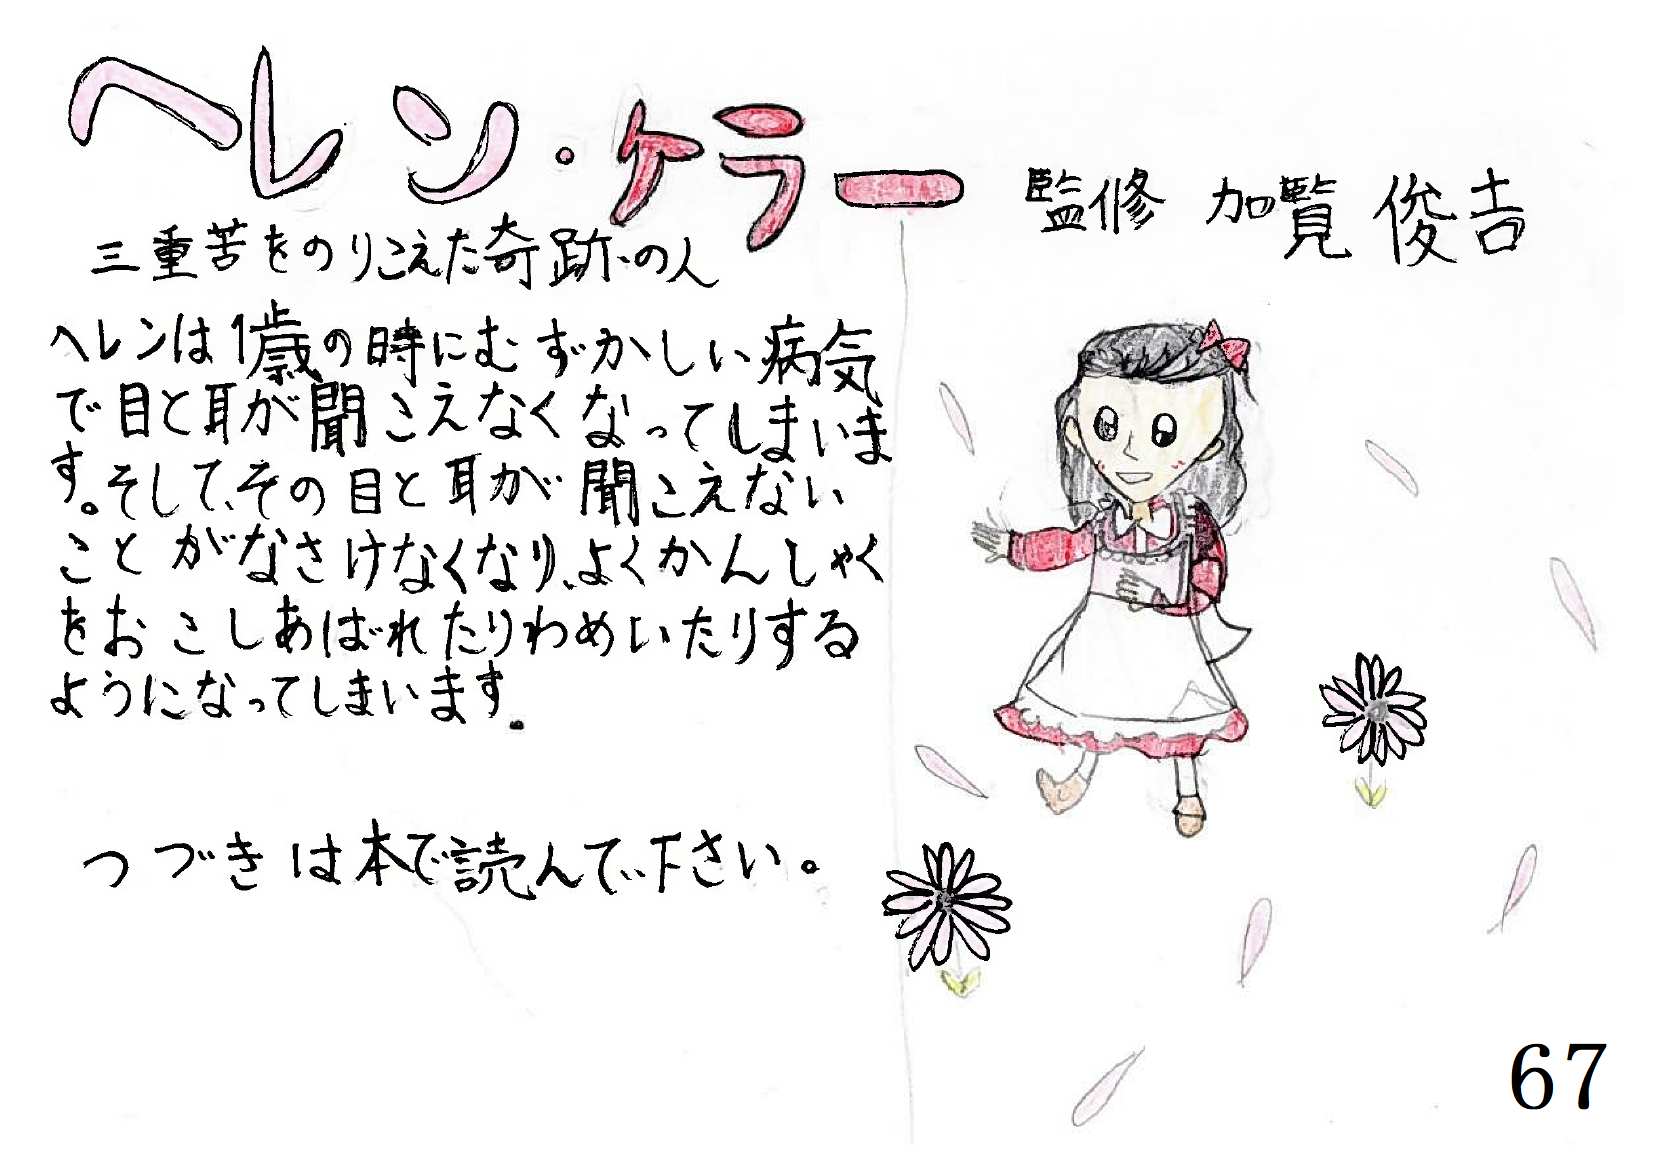 ヘレン・ケラー
監修 加覧 俊吉
三重苦をのりこえた奇跡の人
ヘレンは1歳の時にむずかしい病気
で目と耳が聞こえなくなってしまいま
す。そして、その目と耳が聞こえない
ことがなさけなくなり、よくかんしゃく
をおこしあばれたりわめいたりする
ようになってしまいます.
つづきは本で読んで下さい。
67